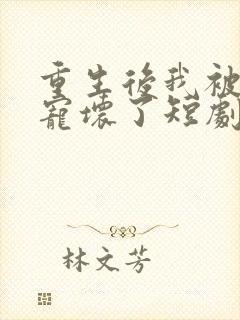 重生後我被
寵壞了短劇
林文芳